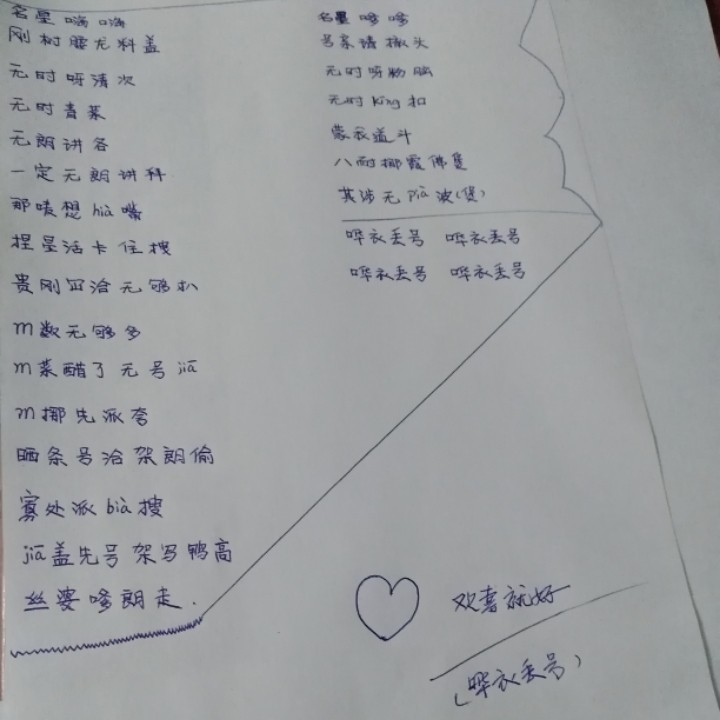 名星嗨嗨
刚树腰龙料盖
无时呀清次
无时青菜
无朗讲各
一定无朗讲科
那唛想hià嘴
捏星活卡住搜
贵刚 洽无够扒
m数无够多
m菜醋了无号jiā
m挪先派夸
晒条号洽架朗偷
寡处派bià搜
jiā盖先号架写鸭高
丝婆嗲朗走.
名星嗲嗲
名亲请揪头
无时呀粉脑
无时King扣
蒙衣盖斗
八耐挪霞佛煲
其涉无pià波(煲)
哗衣丢号 哗衣丢号
哗衣丢号 哗衣丢号
欢喜就好
(哗衣丢号)